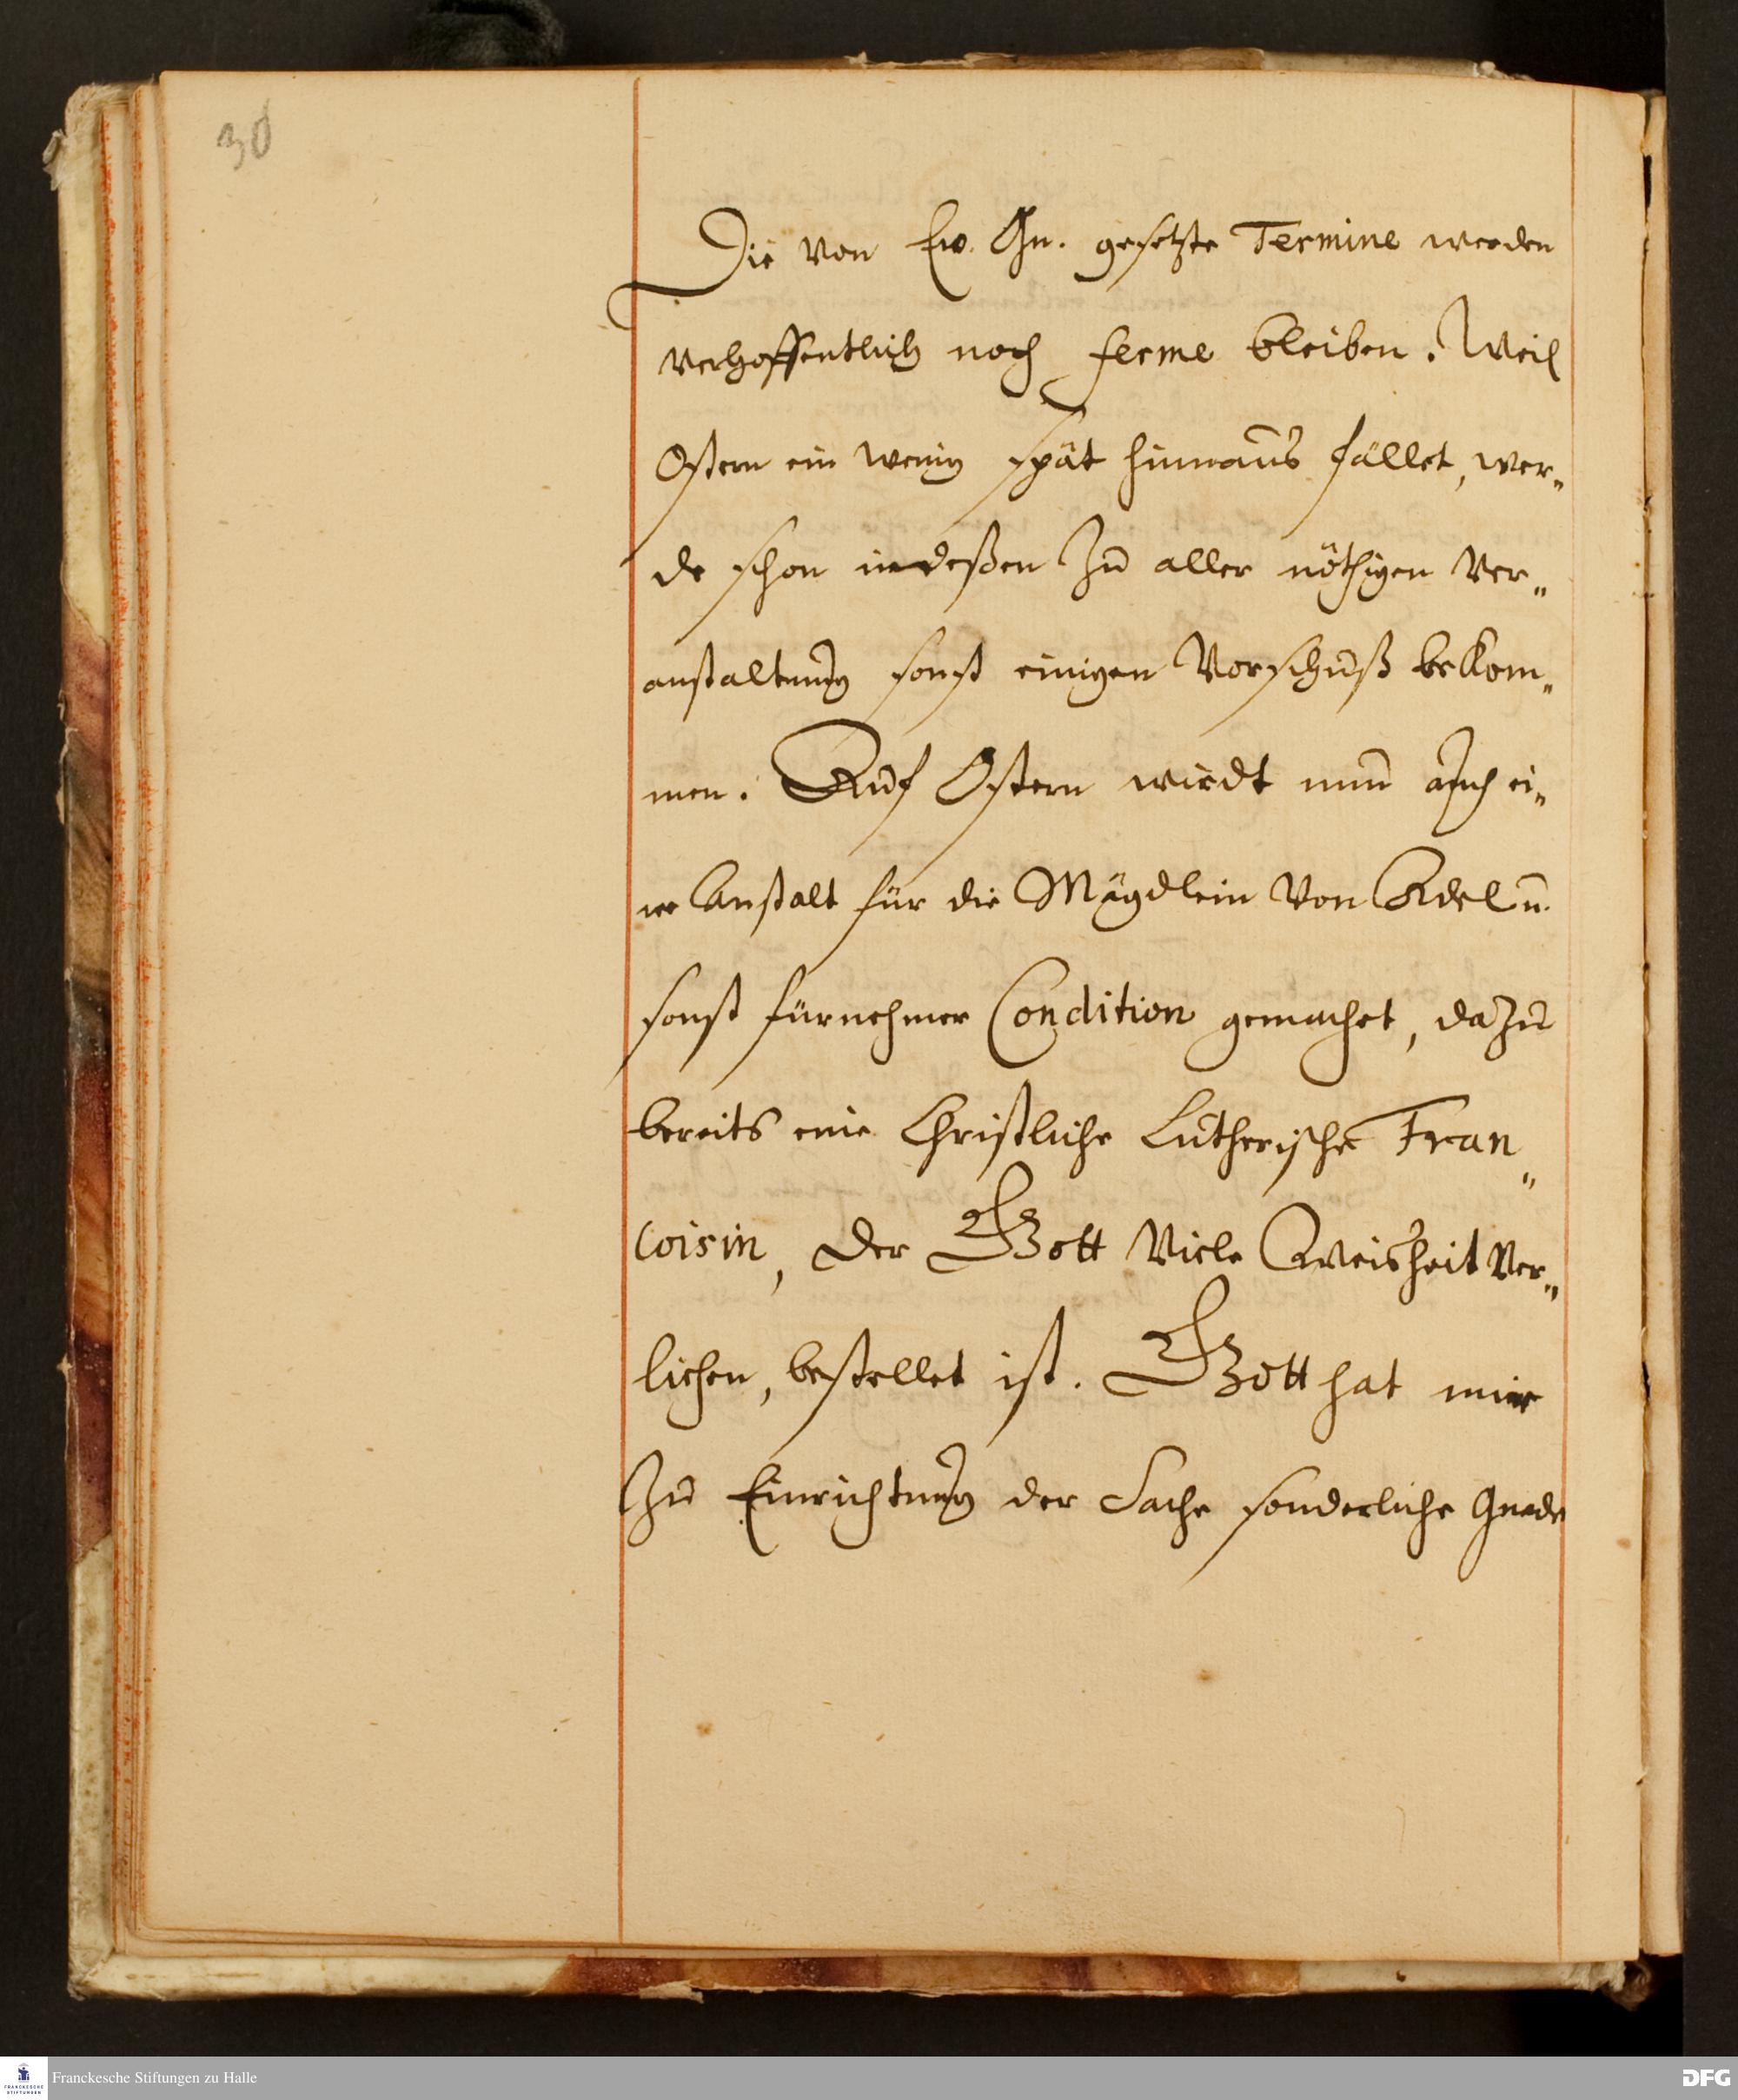 30
Die von Ew. Gn. gesetzte Termine werden
verhoffentlich noch ferme bleiben. Weil
Ostern ein wenig spät hinnaus fället, wer„
de schon indeßen zu aller nöthigen Ver„
anstaltung sonst einigen Vorschuß bekom„
men. Auf Ostern wirdt nun auch ei„
ne Anstalt für die Mägdlein von Adel u.
sonst fürnehmer Condition gemachet, dazu
bereits eine Christliche Lutherische Fran„
coisin, der Gott viele Weisheit ver„
liehen, bestellet ist. Gott hat mir
zu Einrichtung der Sache sonderliche Gnade
FRANCKESCHE STIFTUNGEN
Franckesche Stiftungen zu Halle
DFG